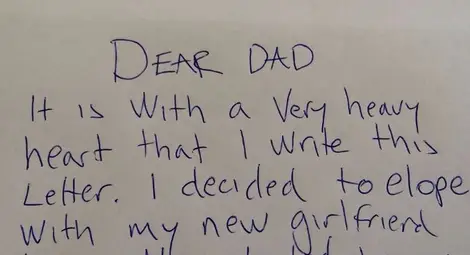 DEAR DAD
It is with a very heavy
heart that I write this
Letter. I decided to elope
with my new girlfriend